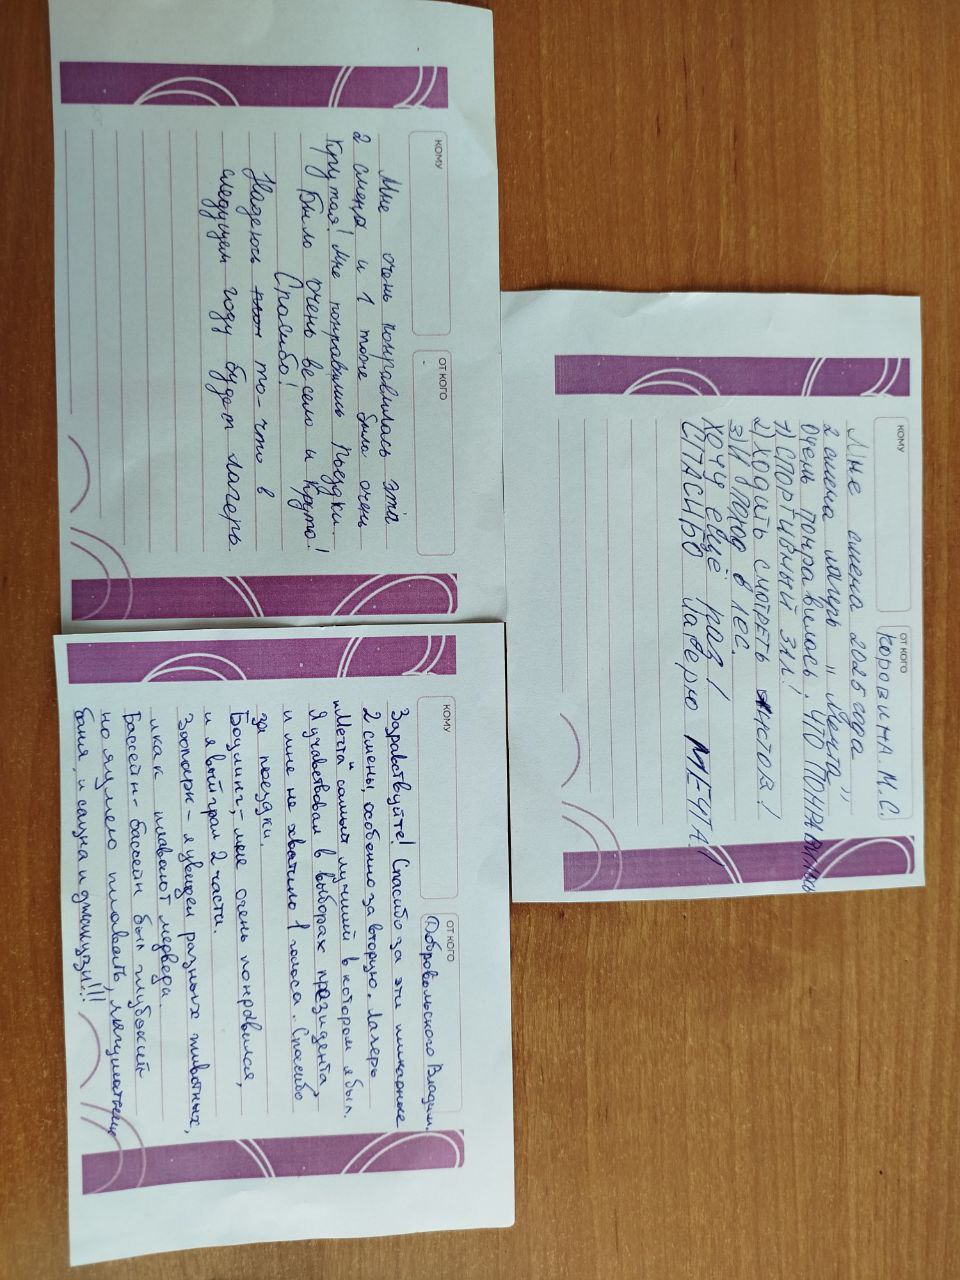 КОМУ
ОТ КОГО
Мне очень понравилась эта
2 смена и 1 тоже было очень
крутая! Мне понравились Поездки.
Было очень весело и Круто!
Спасибо!
Надеюсь то-что в
следущем году будет лагерь.
КОМУ
ОТ КОГО
Коровина. М.С.
Мне смена 2025 года
2 смена лагирь "мечта"
очень понравилось. ЧТО ПОНРАВИЛИСЬ
1) СПОРТИВНЫЙ ЗАЛ!
2) ХОДИТЬ СМОТРЕТЬ
3) И В ПОХОД В ЛЕС.
ХОЧУ ЕЩЁ РАЗ!
СПАСИБО МЕЧТА!
КОМУ
ОТ КОГО
Добровольского Владим.
Здравствуйте! Спасибо за эти шикарные
2 смены, особенно за вторую. Лагерь
"Мечта" самый лучший в котором я был.
Я учавствовал в выборах президента
и мне не хватило 1 голоса. Спасибо
за поездки.
Боулинг - мне очень понравился,
и я выйграл 2 части.
Зоопарк - я увидел разных животных,
и как плавают медведи.
Бассейн - бассейн был глубокий
но я умею плавать,
баня, и сауна и джакузи!!!